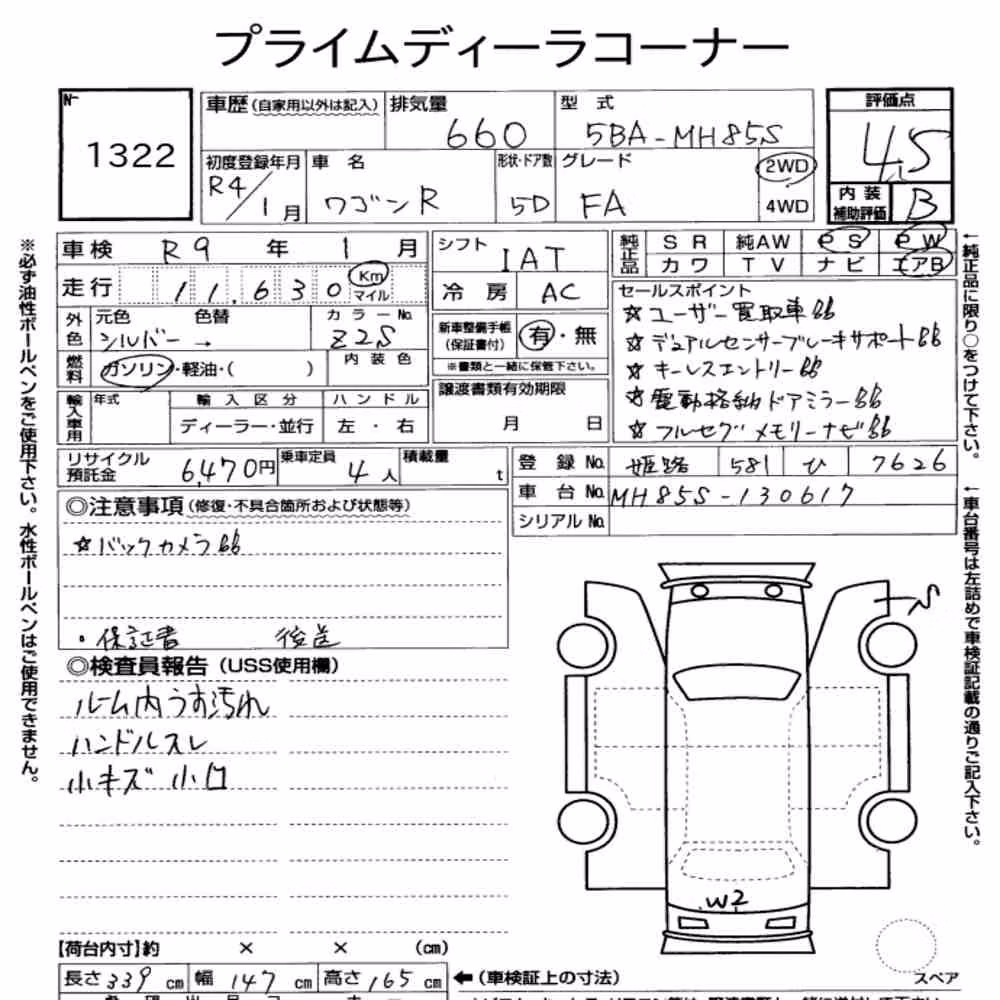 プライムディーラコーナー
No. 1322
車歴(自家用以外は記入) 排気量 660 型 式 5BA-MH85S
評価点 4.5
初度登録年月 R4/1月 車 名 ワゴンR 形状・ドア数 5D グレード FA 2WD 4WD
内装補助評価 B
車検 R9 年 1 月
シフト IAT
純正品 SR 純AW PS PW
カワ TV ナビ エアB
走行 11,630 Km マイル
冷房 AC
セールスポイント
☆ユーザー買取車♭♭
☆デュアルセンサーブレーキサポート♭♭
☆キーレスエントリー♭♭
☆電動格納ドアミラー♭♭
☆フルセグメモリーナビ♭♭
外色 元色 シルバー 色替 → カラーNo. Z2S
新車整備手帳(保証書付) 有・無
※書類と一緒に保管下さい。
燃料 ガソリン・軽油・( ) 内装色
譲渡書類有効期限 月 日
輸入車用 年式 輸入区分 ハンドル
ディーラー・並行 左・右
リサイクル預託金 6,470円 乗車定員 4人 積載量 t
登録No. 姫路 581 ひ 7626
車台No. MH85S-130617
シリアルNo.
◎注意事項(修復・不具合箇所および状態等)
☆バックカメラ♭♭
・保証書 後送
◎検査員報告(USS使用欄)
ルーム内うす汚れ
ハンドルスレ
小キズ小凹
W2
【荷台内寸】約 × × (cm)
長さ339cm 幅147cm 高さ165cm ←(車検証上の寸法)
スペア
※必ず油性ボールペンをご使用下さい。水性ボールペンはご使用できません。
←純正品に限り○をつけて下さい。
←車台番号は左詰めで車検証記載の通りご記入下さい。